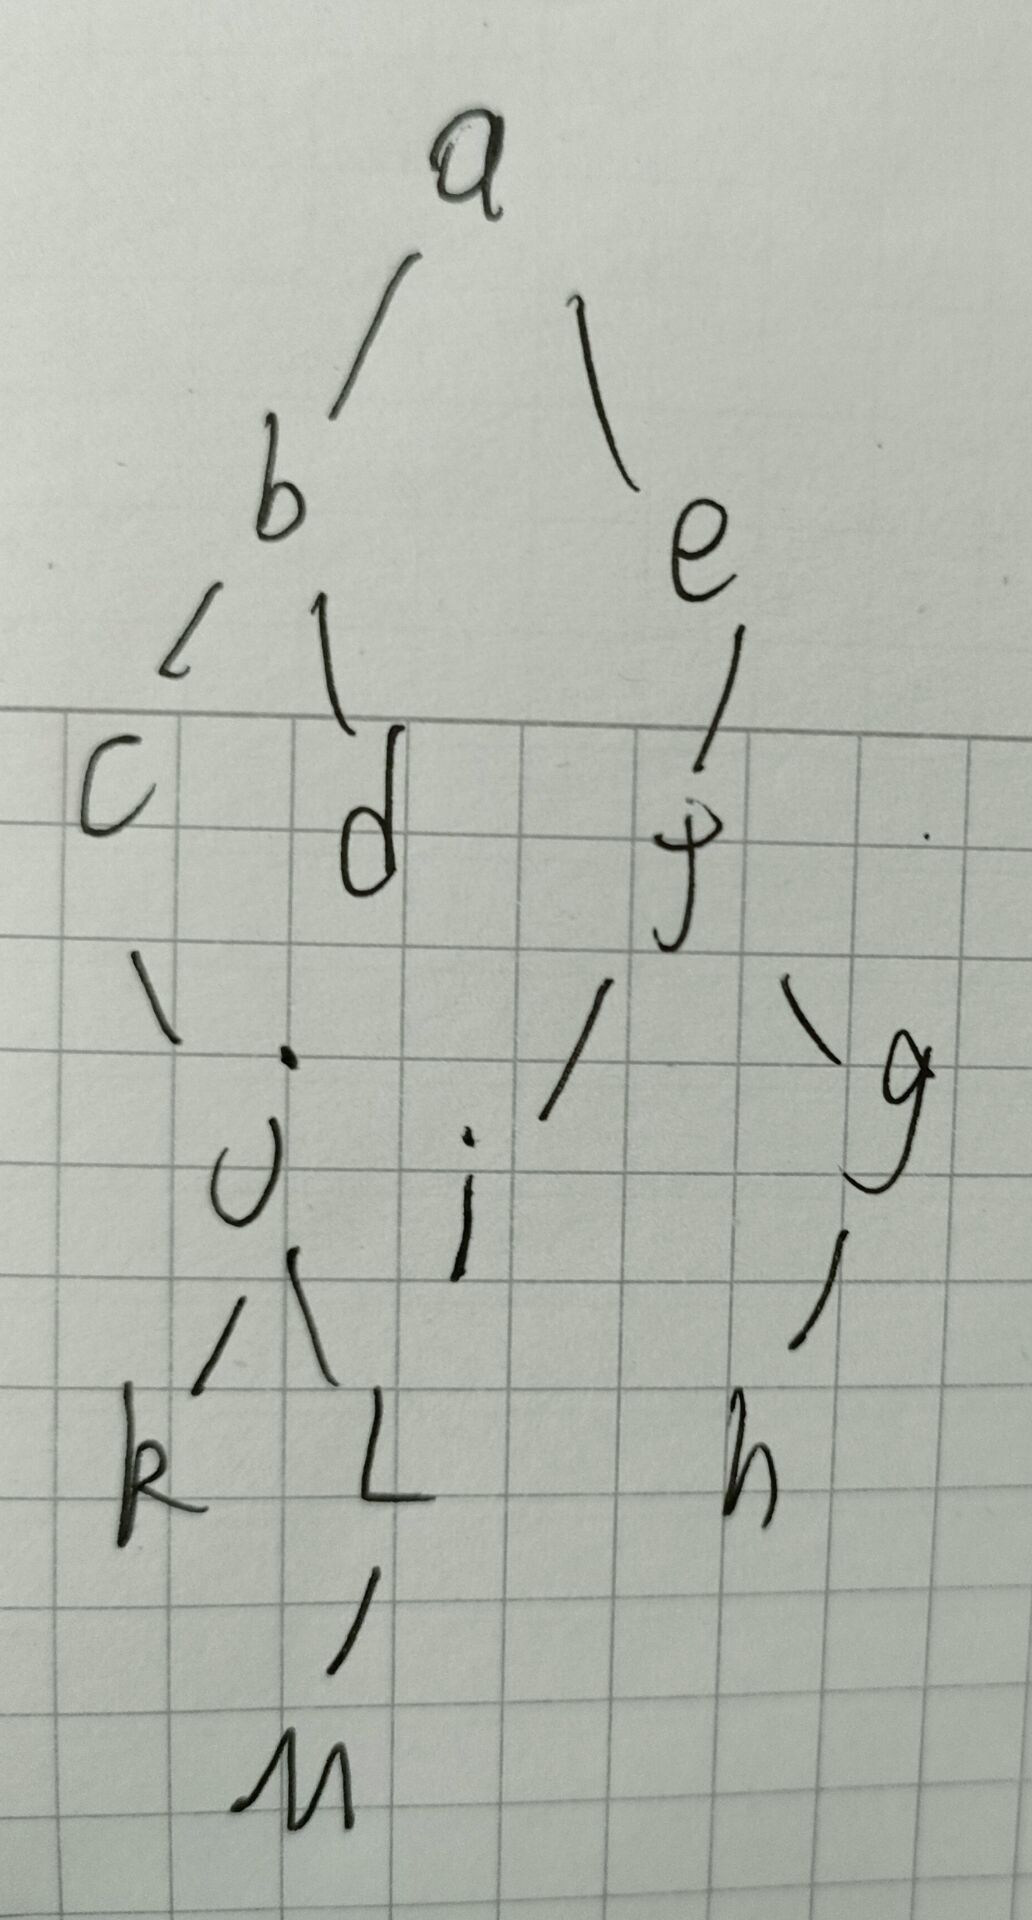 a
b e
c d f
j i g
k L h
M